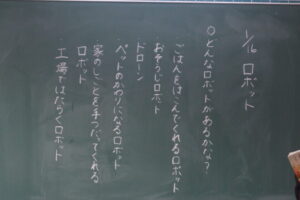 1/16 ロボット
○どんなロボットがあるかな?
ごはんをはこんでくれるロボット
おそうじロボット
ドローン
ペットのかわりになるロボット
家のしごとを手つだってくれる
ロボット
工場ではたらくロボット